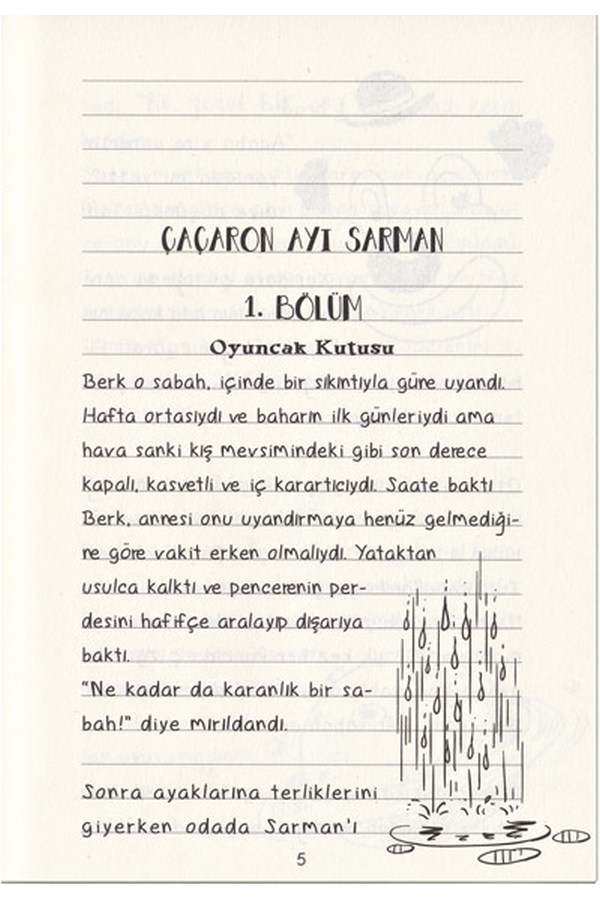 ÇAÇARON AYI SARMAN
1. BÖLÜM
Oyuncak Kutusu
Berk o sabah, içinde bir sıkıntıyla güne uyandı.
Hafta ortasıydı ve baharın ilk günleriydi ama
hava sanki kış mevsimindeki gibi son derece
kapalı, kasvetli ve iç karartıcıydı. Saate baktı
Berk, annesi onu uyandırmaya henüz gelmediği-
ne göre vakit erken olmalıydı. Yataktan
usulca kalktı ve pencerenin per-
desini hafifçe aralayıp dışarıya
baktı.
"Ne kadar da karanlık bir sa-
bah!" diye mırıldandı.
Sonra ayaklarına terliklerini
giyerken odada Sarman'ı
5